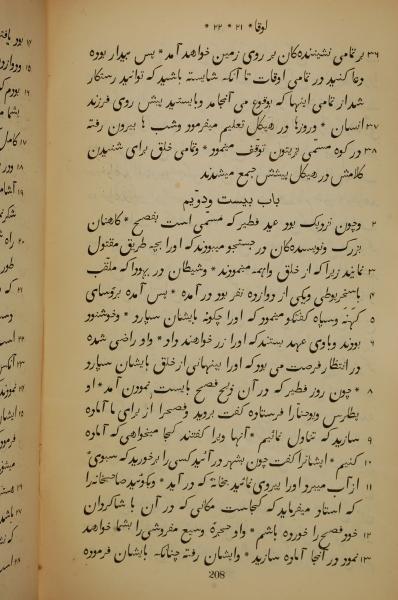 لوقا * ۲۱ * ۲۲ *
۳۶ بر تمامی نشینندهکان بر روی زمین خواهد آمد * پس بیدار بوده
دعا کنید در تمامی اوقات تا آنکه شایسته باشید که توانید رستکار
شد از تمامی اینها که بوقوع می آنجامد و بایستید پیش روی فرزند
۳۷ انسان * و روزها در هیکل تعلیم میفرمود و شب ها بیرون رفته
۳۸ در کوه مسمی بزیتون توقف مینمود * و تمامی خلق برای شنیدن
کلامش در هیکل پیشش جمع میشدند
باب بیست و دویم
۲ و چون نزدیک بود عید فطیر که مسمّی است بفصح * کاهنان
بزرک و نویسندهکان در جستجو میبودند که او را بچه طریق مقتول
۳ نمایند زیرا که از خلق واهمه مینمودند * و شیطان در یهودا که ملقب
۴ باسخریوطی و یکی از دوازده نفر بود در آمده * پس آمده برؤسای
۵ کهنه و سپاه گفتکو مینمود که او را چکونه بایشان سپارد * و خوشنود
۶ بودند و با وی عهد بستند که او را زر خواهند داد * و او راضی شده
در انتظار فرصت می بود که او را پنهانی از خلق بایشان سپارد
۸ * چون روز فطیر که در آن ذبح فصح بایست نمودن آمد * او
بطرس و یوحنا را فرستاده گفت بروید و فصح را از برای ما آماده
۹ سازید که تناول نمائیم * آنها ویرا گفتند کجا میخواهی که آماده
۱۰ کنیم * ایشانرا گفت چون بشهر در آئید کسی را برخورید که سبوی
۱۱ از آب میبرد او را پیروی نمائید بخانهٔ که در آید * و بکوئید صاحبخانه را
که استاد میفرماید که کجاست مکانی که در آن با شاکردان
۱۲ خود فصح را خورده باشم * و او حجرهٔ وسیع مفروشی را بشما خواهد
۱۳ نمود در آنجا آماده سازید * و ایشان رفته چنانکه بایشان فرموده
208